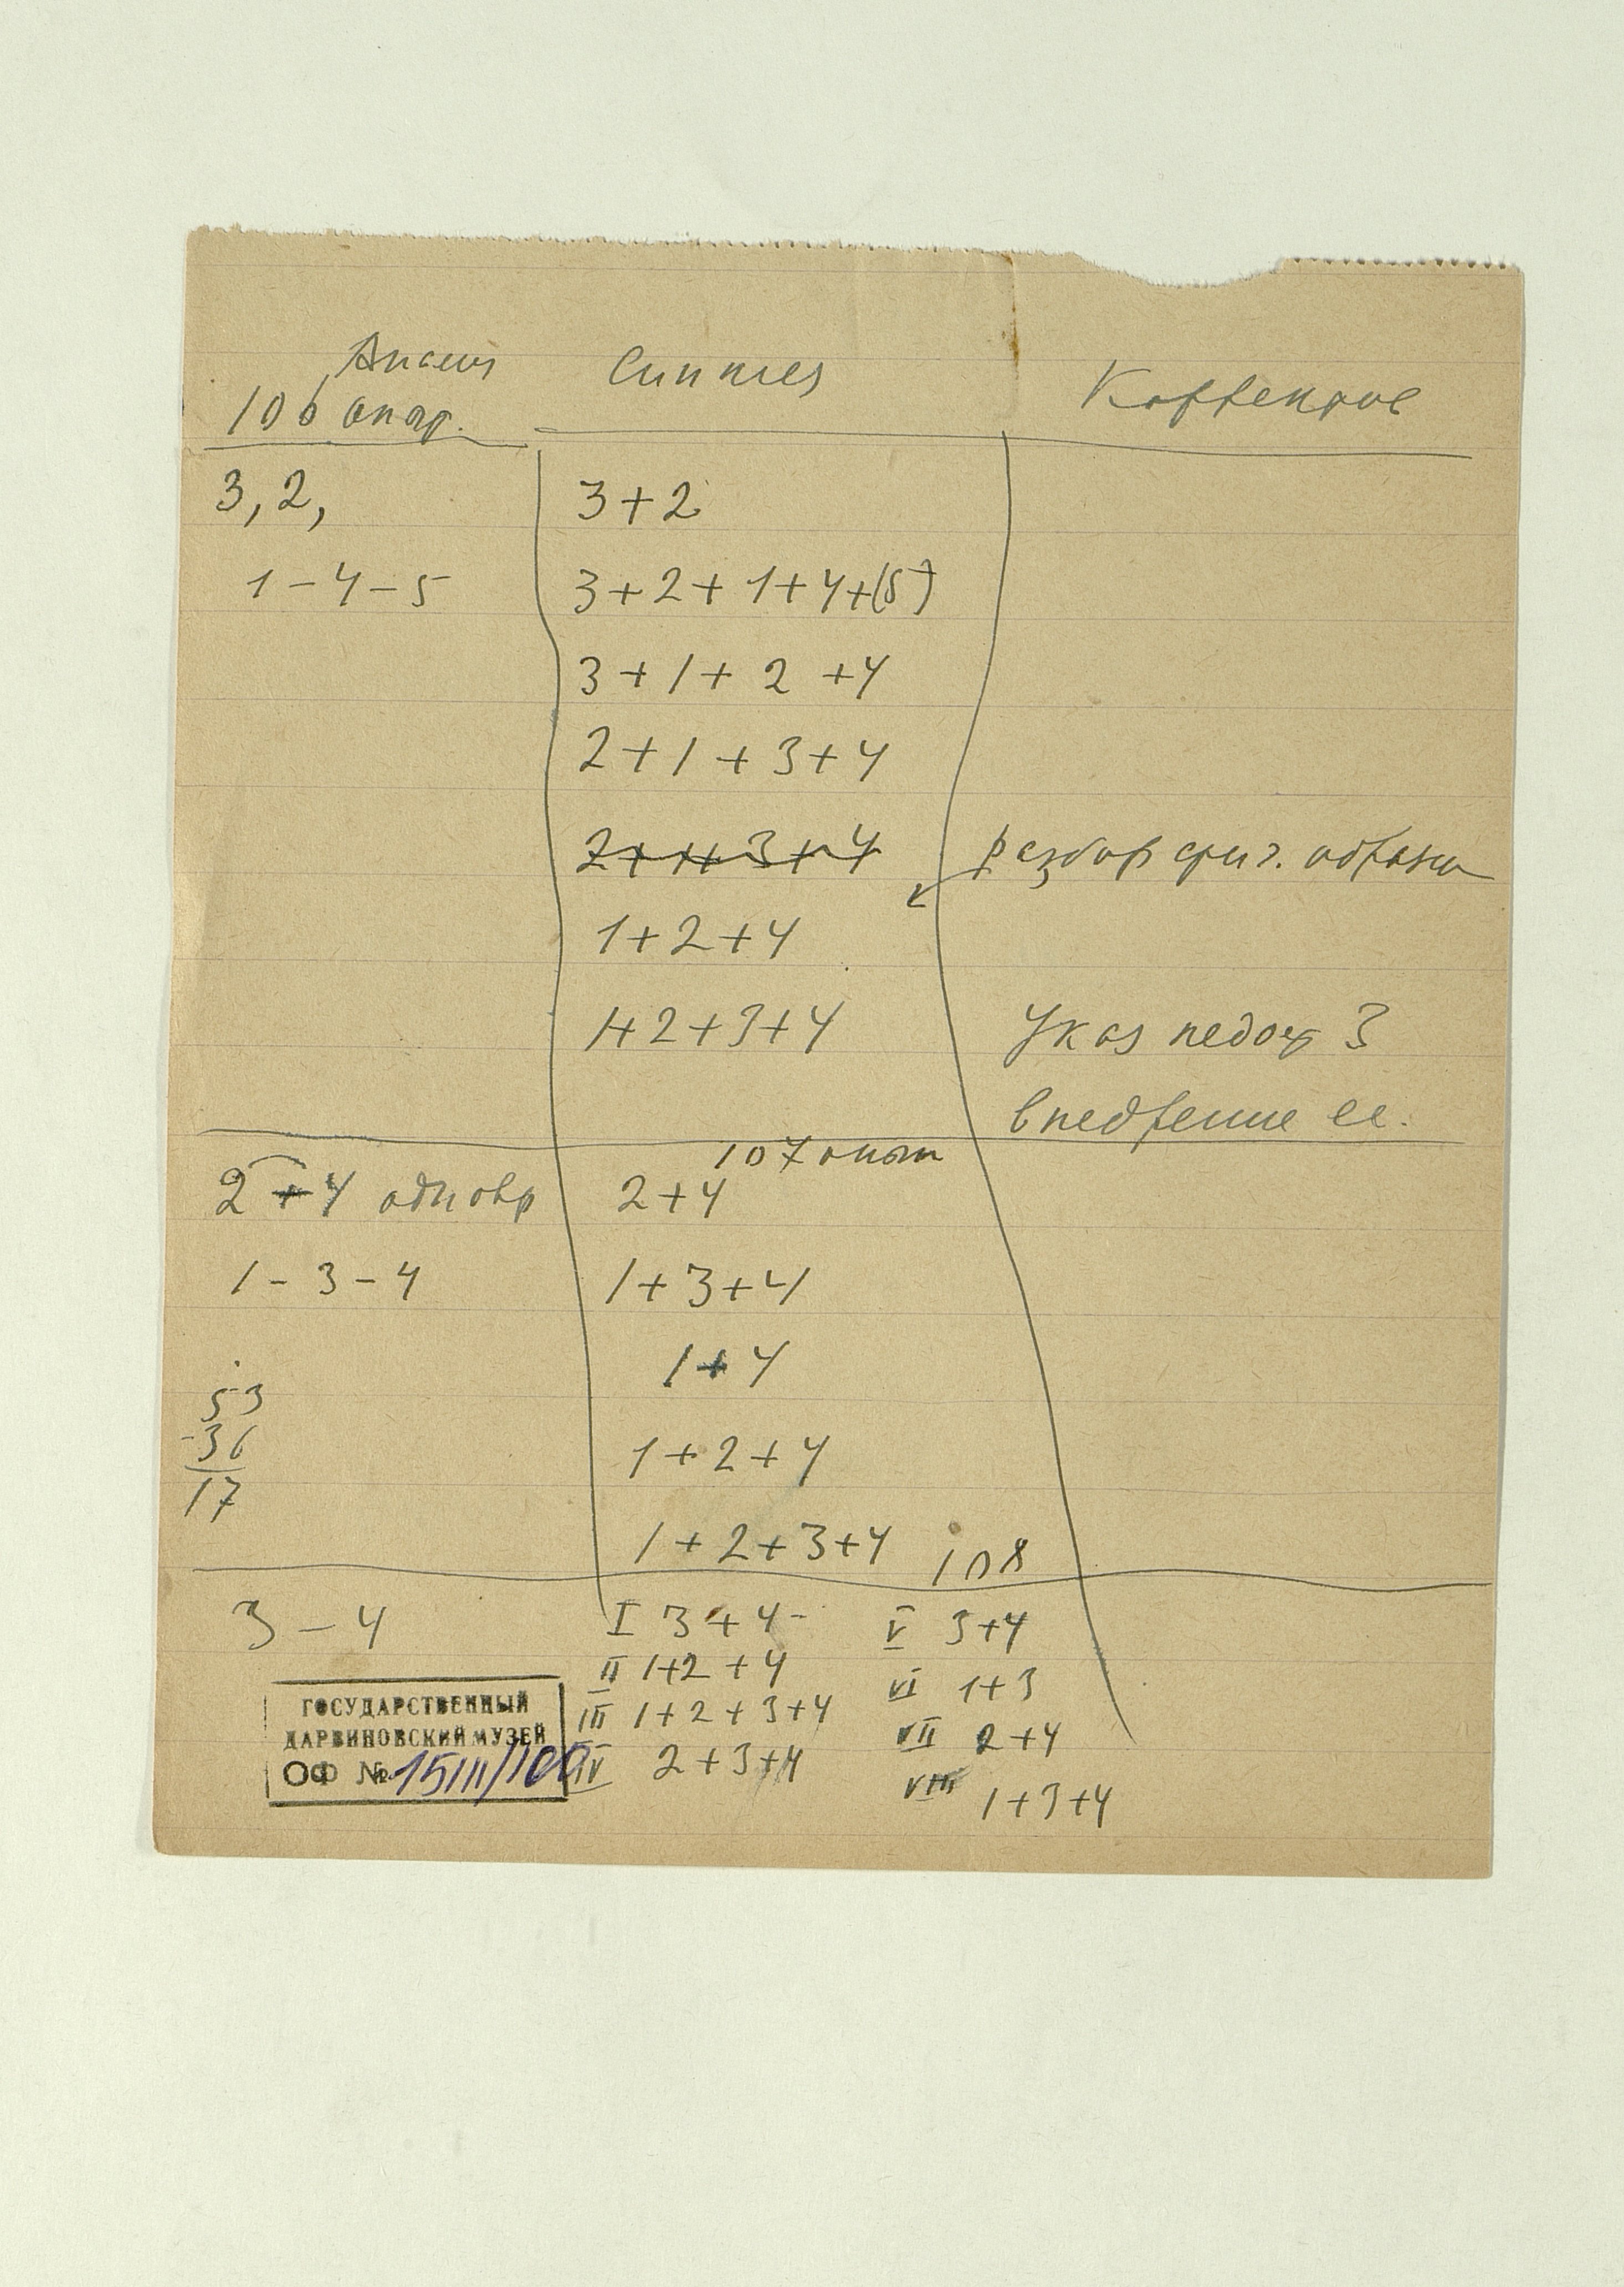 Анализ Синтез Корректив
106 опыт.
3, 2, 3+2
1-4-5 3+2+1+4+(5)
3+1+2+4
2+1+3+4
2+1+3+4 разбор ориг. образц
1+2+4
1+2+3+4 Указ недост 3
внедрение ее.
107 опыт
2+4 одновр 2+4
1-3-4 1+3+4
1+4
53
-36
17
1+2+4
1+2+3+4
108
3-4 I 3+4- V 3+4
II 1+2+4 VI 1+3
III 1+2+3+4 VII 2+4
IV 2+3+4 VIII 1+3+4
ГОСУДАРСТВЕННЫЙ
ДАРВИНОВСКИЙ МУЗЕЙ
ОФ № 15111/100